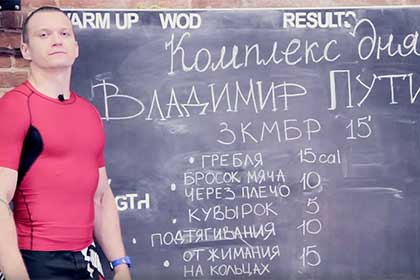 WARM UP WOD RESULTS
Комплекс дня
ВЛАДИМИР ПУТИ
ЗКМБР 15'
• ГРЕБЛЯ 15 cal
• БРОСОК МЯЧА
ЧЕРЕЗ ПЛЕЧО 10
• КУВЫРОК 5
• ПОДТЯГИВАНИЯ 10
• ОТЖИМАНИЯ
НА КОЛЬЦАХ 15
GTH